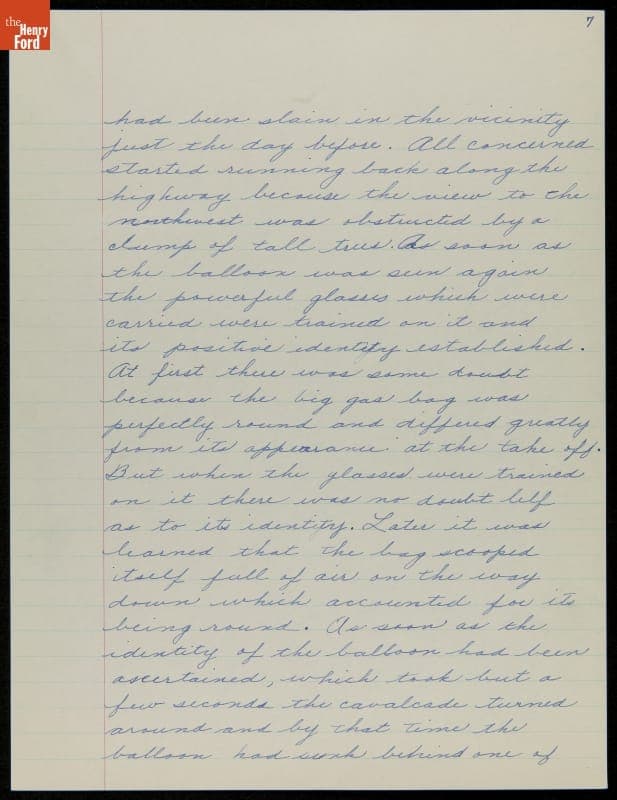 the
Henry
Ford
7
had been slain in the vicinity
just the day before. All concerned
started running back along the
highway because the view to the
northwest was obstructed by a
clump of tall trees. As soon as
the balloon was seen again
the powerful glasses which were
carried were trained on it and
its positive identity established.
At first there was some doubt
because the big gas bag was
perfectly round and differed greatly
from its appearance at the take off.
But when the glasses were trained
on it there was no doubt left
as to its identity. Later it was
learned that the bag scooped
itself full of air on the way
down which accounted for its
being round. As soon as the
identity of the balloon had been
ascertained, which took but a
few seconds the cavalcade turned
around and by that time the
balloon had sunk behind one of